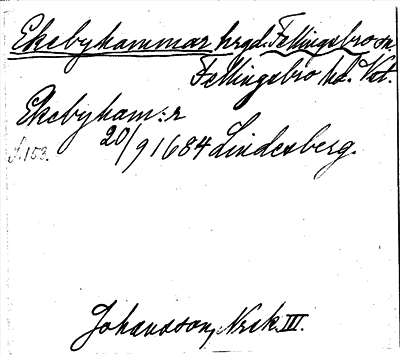 Ekebyhammar hrgd. Fellingsbro sn
Fellingsbro hd. Vst.
Ekebyham:r
20/9 1684 Lindesberg.
S. 153.
Johansson, Nrck III.